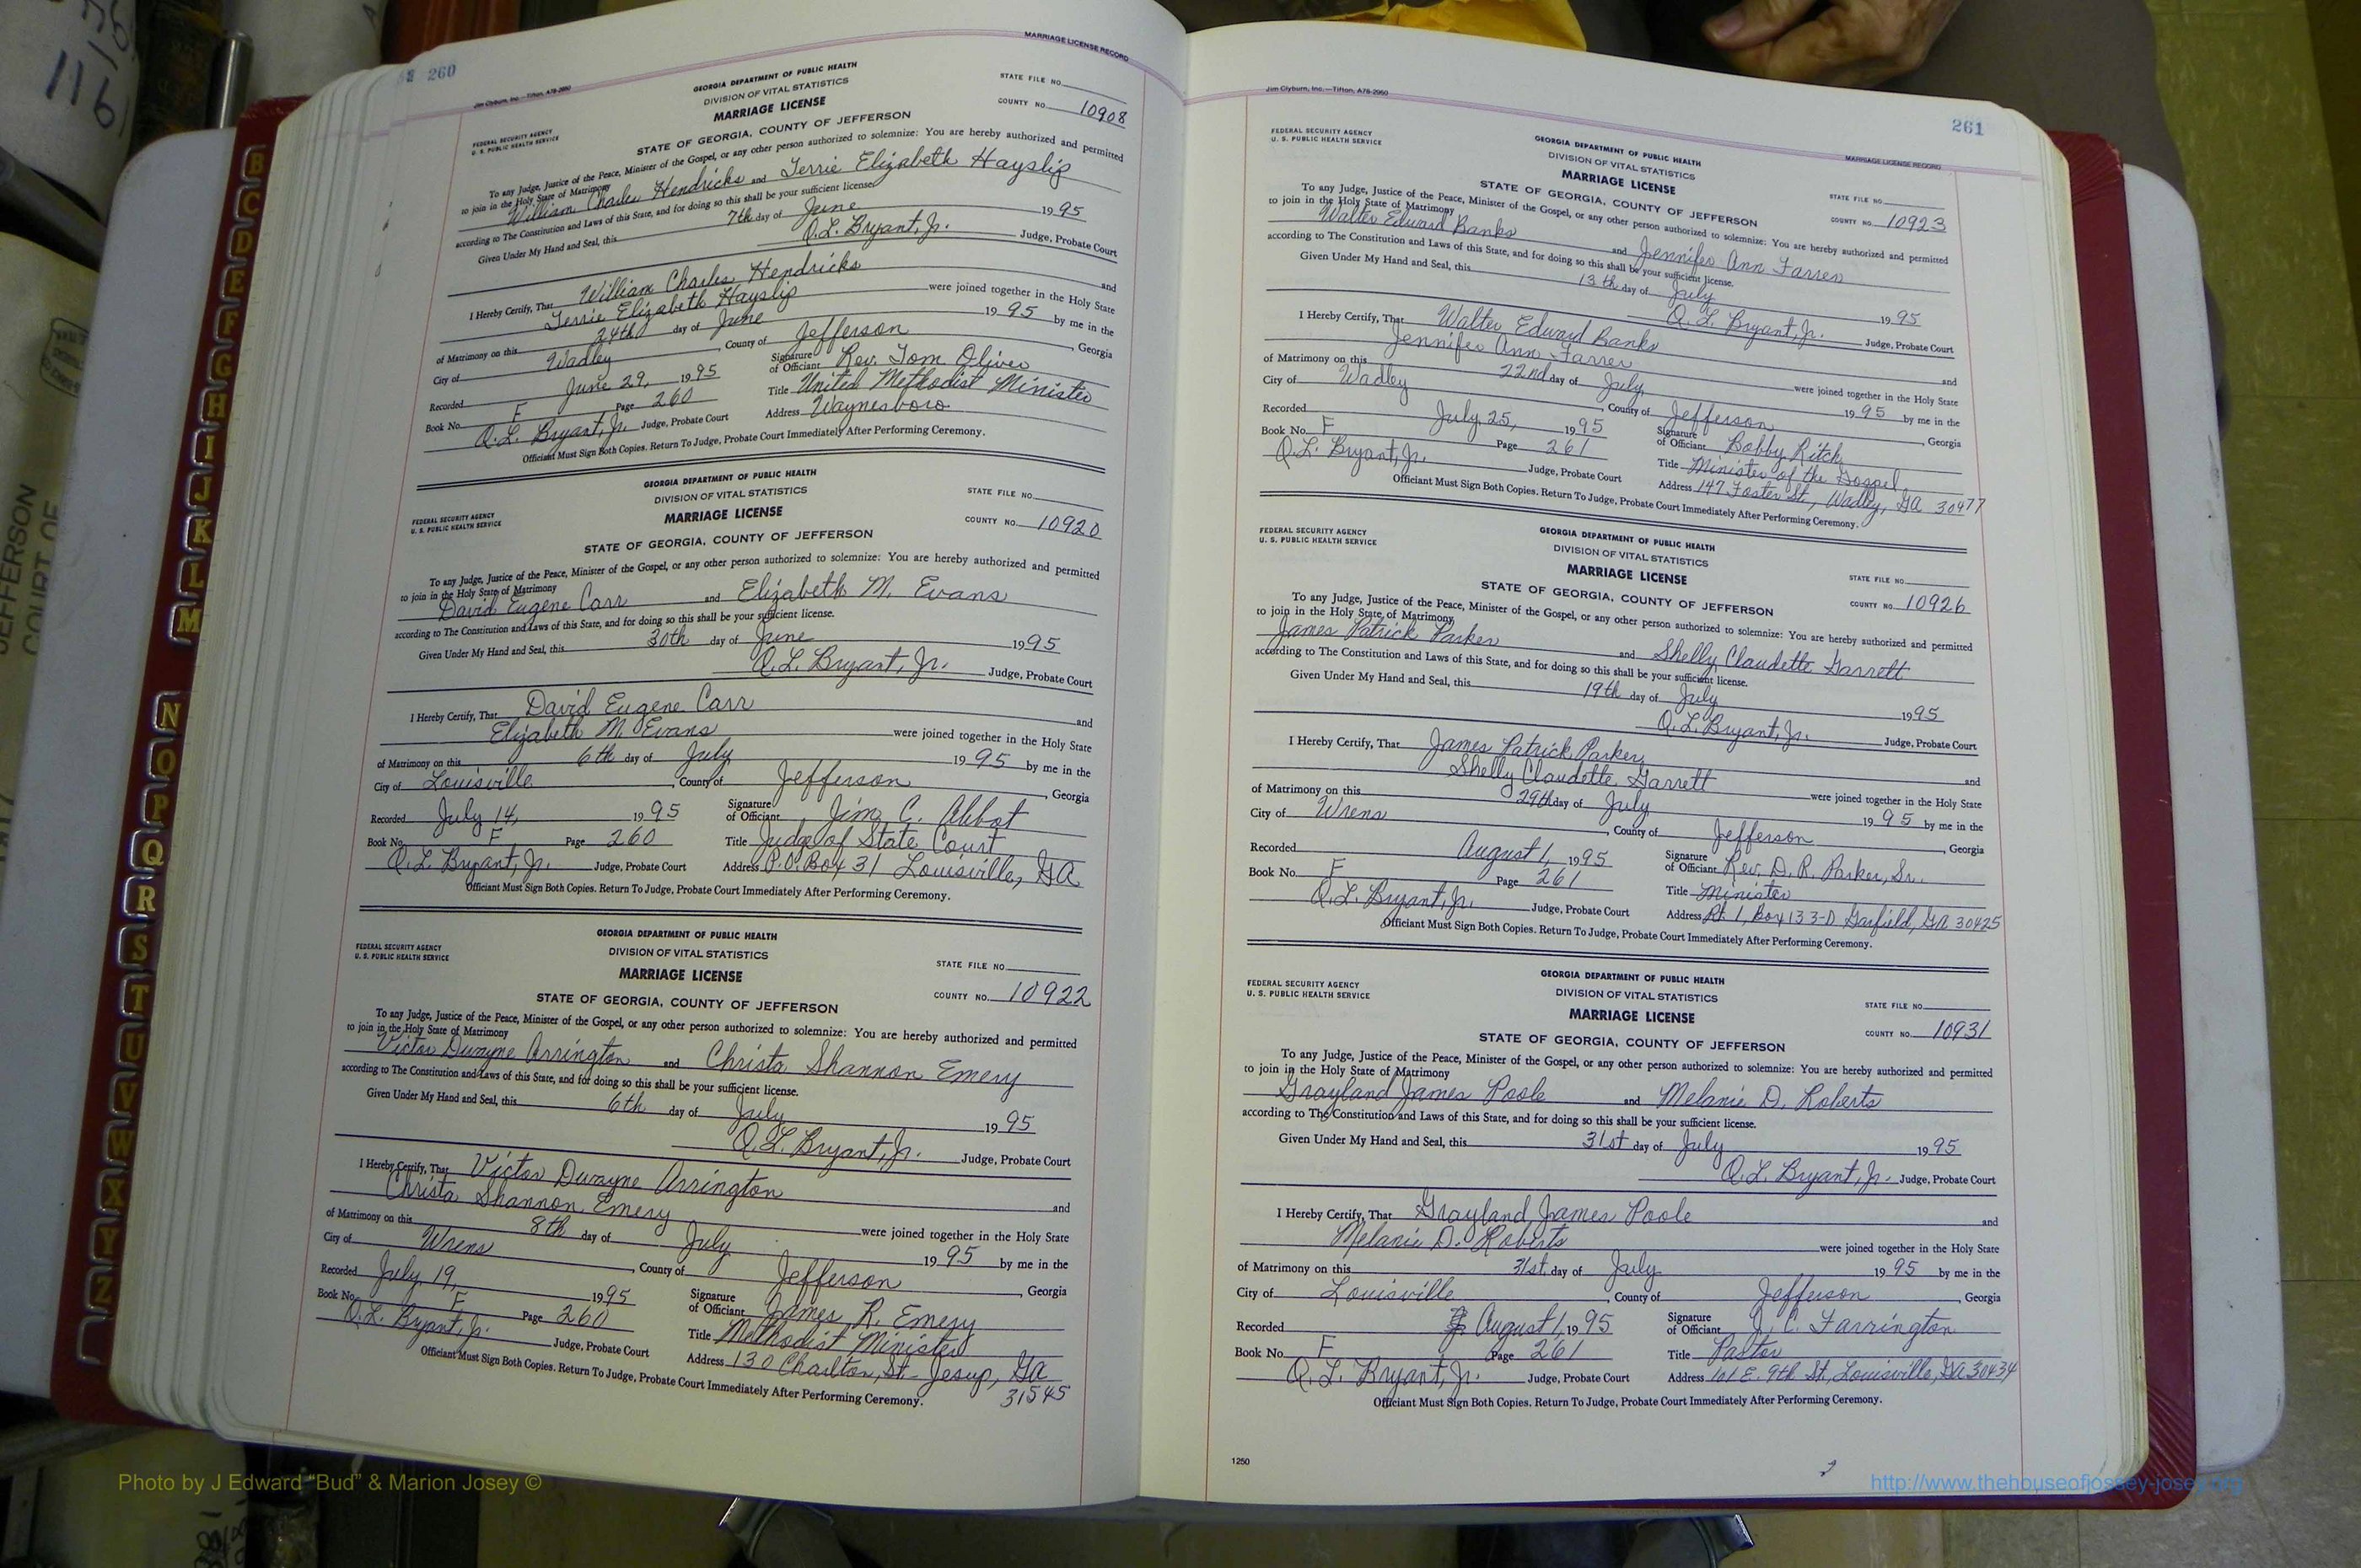 260
MARRIAGE LICENSE RECORD
Jim Clyburn, Inc.—Tifton, A78-2960
GEORGIA DEPARTMENT OF PUBLIC HEALTH
DIVISION OF VITAL STATISTICS
MARRIAGE LICENSE
STATE FILE NO.
COUNTY NO. 10908
FEDERAL SECURITY AGENCY
U. S. PUBLIC HEALTH SERVICE
STATE OF GEORGIA, COUNTY OF JEFFERSON
To any Judge, Justice of the Peace, Minister of the Gospel, or any other person authorized to solemnize: You are hereby authorized and permitted
to join in the Holy State of Matrimony
William Charles Hendricks and Terrie Elizabeth Hayslip
according to The Constitution and Laws of this State, and for doing so this shall be your sufficient license.
Given Under My Hand and Seal, this 7th day of June 1995
Q.L. Bryant, Jr. Judge, Probate Court
I Hereby Certify, That William Charles Hendricks and
Terrie Elizabeth Hayslip were joined together in the Holy State
of Matrimony on this 24th day of June 1995 by me in the
City of Wadley, County of Jefferson, Georgia
Recorded June 29, 1995 Signature of Officiant Rev. Tom Oliver
Book No. F Page 260 Title United Methodist Minister
Q.L. Bryant, Jr. Judge, Probate Court Address Waynesboro
Officiant Must Sign Both Copies. Return To Judge, Probate Court Immediately After Performing Ceremony.
GEORGIA DEPARTMENT OF PUBLIC HEALTH
DIVISION OF VITAL STATISTICS
MARRIAGE LICENSE
STATE FILE NO.
COUNTY NO. 10920
FEDERAL SECURITY AGENCY
U. S. PUBLIC HEALTH SERVICE
STATE OF GEORGIA, COUNTY OF JEFFERSON
To any Judge, Justice of the Peace, Minister of the Gospel, or any other person authorized to solemnize: You are hereby authorized and permitted
to join in the Holy State of Matrimony
David Eugene Carr and Elizabeth M. Evans
according to The Constitution and Laws of this State, and for doing so this shall be your sufficient license.
Given Under My Hand and Seal, this 30th day of June 1995
Q.L. Bryant, Jr. Judge, Probate Court
I Hereby Certify, That David Eugene Carr and
Elizabeth M. Evans were joined together in the Holy State
of Matrimony on this 6th day of July 1995 by me in the
City of Louisville, County of Jefferson, Georgia
Recorded July 14, 1995 Signature of Officiant Jim C. Abbot
Book No. F Page 260 Title Judge of State Court
Q.L. Bryant, Jr. Judge, Probate Court Address P.O. Box 31 Louisville, GA
Officiant Must Sign Both Copies. Return To Judge, Probate Court Immediately After Performing Ceremony.
GEORGIA DEPARTMENT OF PUBLIC HEALTH
DIVISION OF VITAL STATISTICS
MARRIAGE LICENSE
STATE FILE NO.
COUNTY NO. 10922
FEDERAL SECURITY AGENCY
U. S. PUBLIC HEALTH SERVICE
STATE OF GEORGIA, COUNTY OF JEFFERSON
To any Judge, Justice of the Peace, Minister of the Gospel, or any other person authorized to solemnize: You are hereby authorized and permitted
to join in the Holy State of Matrimony
Victor Dwayne Arrington and Christa Shannon Emery
according to The Constitution and Laws of this State, and for doing so this shall be your sufficient license.
Given Under My Hand and Seal, this 6th day of July 1995
Q.L. Bryant, Jr. Judge, Probate Court
I Hereby Certify, That Victor Dwayne Arrington and
Christa Shannon Emery were joined together in the Holy State
of Matrimony on this 8th day of July 1995 by me in the
City of Wrens, County of Jefferson, Georgia
Recorded July 19, 1995 Signature of Officiant James R. Emery
Book No. F Page 260 Title Methodist Minister
Q.L. Bryant, Jr. Judge, Probate Court Address 130 Charlton St - Jesup, Ga
31545
Officiant Must Sign Both Copies. Return To Judge, Probate Court Immediately After Performing Ceremony.
Jim Clyburn, Inc.—Tifton, A78-2960
261
MARRIAGE LICENSE RECORD
FEDERAL SECURITY AGENCY
U. S. PUBLIC HEALTH SERVICE
GEORGIA DEPARTMENT OF PUBLIC HEALTH
DIVISION OF VITAL STATISTICS
MARRIAGE LICENSE
STATE OF GEORGIA, COUNTY OF JEFFERSON
STATE FILE NO.
COUNTY NO. 10923
To any Judge, Justice of the Peace, Minister of the Gospel, or any other person authorized to solemnize: You are hereby authorized and permitted
to join in the Holy State of Matrimony
Walter Edward Banks and Jennifer Ann Farrer
according to The Constitution and Laws of this State, and for doing so this shall be your sufficient license.
Given Under My Hand and Seal, this 13th day of July 1995
Q.L. Bryant, Jr. Judge, Probate Court
I Hereby Certify, That Walter Edward Banks and
Jennifer Ann Farrer were joined together in the Holy State
of Matrimony on this 22nd day of July, 1995 by me in the
City of Wadley, County of Jefferson, Georgia
Recorded July 25, 1995 Signature of Officiant Bobby Ritch
Book No. F Page 261 Title Minister of the Gospel
Q.L. Bryant, Jr. Judge, Probate Court Address 147 Foster St., Wadley, GA 30477
Officiant Must Sign Both Copies. Return To Judge, Probate Court Immediately After Performing Ceremony.
FEDERAL SECURITY AGENCY
U. S. PUBLIC HEALTH SERVICE
GEORGIA DEPARTMENT OF PUBLIC HEALTH
DIVISION OF VITAL STATISTICS
MARRIAGE LICENSE
STATE OF GEORGIA, COUNTY OF JEFFERSON
STATE FILE NO.
COUNTY NO. 10926
To any Judge, Justice of the Peace, Minister of the Gospel, or any other person authorized to solemnize: You are hereby authorized and permitted
to join in the Holy State of Matrimony
James Patrick Parker and Shelly Claudette Garrett
according to The Constitution and Laws of this State, and for doing so this shall be your sufficient license.
Given Under My Hand and Seal, this 19th day of July 1995
Q.L. Bryant, Jr. Judge, Probate Court
I Hereby Certify, That James Patrick Parker and
Shelly Claudette Garrett were joined together in the Holy State
of Matrimony on this 29th day of July 1995 by me in the
City of Wrens, County of Jefferson, Georgia
Recorded August 1, 1995 Signature of Officiant Rev. D. R. Parker, Sr.
Book No. F Page 261 Title Minister
Q.L. Bryant, Jr. Judge, Probate Court Address Rt. 1, Box 133-D Garfield, GA 30425
Officiant Must Sign Both Copies. Return To Judge, Probate Court Immediately After Performing Ceremony.
FEDERAL SECURITY AGENCY
U. S. PUBLIC HEALTH SERVICE
GEORGIA DEPARTMENT OF PUBLIC HEALTH
DIVISION OF VITAL STATISTICS
MARRIAGE LICENSE
STATE OF GEORGIA, COUNTY OF JEFFERSON
STATE FILE NO.
COUNTY NO. 10931
To any Judge, Justice of the Peace, Minister of the Gospel, or any other person authorized to solemnize: You are hereby authorized and permitted
to join in the Holy State of Matrimony
Grayland James Poole and Melanie D. Roberts
according to The Constitution and Laws of this State, and for doing so this shall be your sufficient license.
Given Under My Hand and Seal, this 31st day of July 1995
Q.L. Bryant, Jr. Judge, Probate Court
I Hereby Certify, That Grayland James Poole and
Melanie D. Roberts were joined together in the Holy State
of Matrimony on this 31st day of July 1995 by me in the
City of Louisville, County of Jefferson, Georgia
Recorded August 1, 1995 Signature of Officiant J. C. Farrington
Book No. F Page 261 Title Pastor
Q.L. Bryant, Jr. Judge, Probate Court Address 101 E. 9th St, Louisville, GA 30434
Officiant Must Sign Both Copies. Return To Judge, Probate Court Immediately After Performing Ceremony.
1250
B
C
D
E
F
G
H
I
J
K
L
M
N
O
P
Q
R
S
T
U
V
W
X
Y
Z
116
JEFFERSON
COURT OF
Photo by J Edward “Bud” & Marion Josey ©
http://www.thehouseofjossey-josey.org